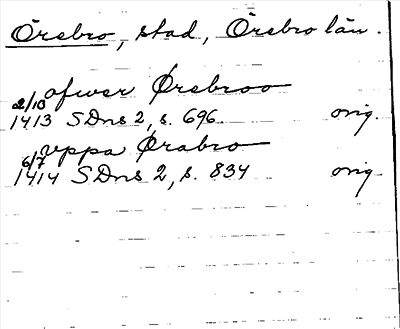 Örebro, stad, Örebro län.
ofwer Ørebroo
2/10 1413 SDns 2, s. 696 orig.
vppa Ørabro
6/7 1414 SDns 2, s. 834 orig.